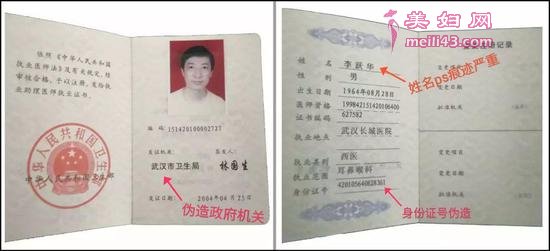 依照《中华人民共和国
执业医师法》及有关规定，经
审核合格，予以注册，发给
执业助理医师执业证书。
中华人民共和国卫生部
中华人民共和国卫生部
编码：151420100002727
发证机关：
签发人：
武汉市卫生局
林国生
伪造政府机关
发证日期：2004年04月23日
美妇网
meili43.com
姓名 李跃华
性别 男
姓名ps痕迹严重
出生日期 1964年08月28日
医师资格 199842151420106400
证书编码 627582
执业地点 武汉长城医院
执业类别 西医
执业范围 耳鼻喉科
身份证号 420105640828361
身份证号伪造
变更注册记录
变更项目
变更日期
批准机关
变更项目
变更日期
批准机关